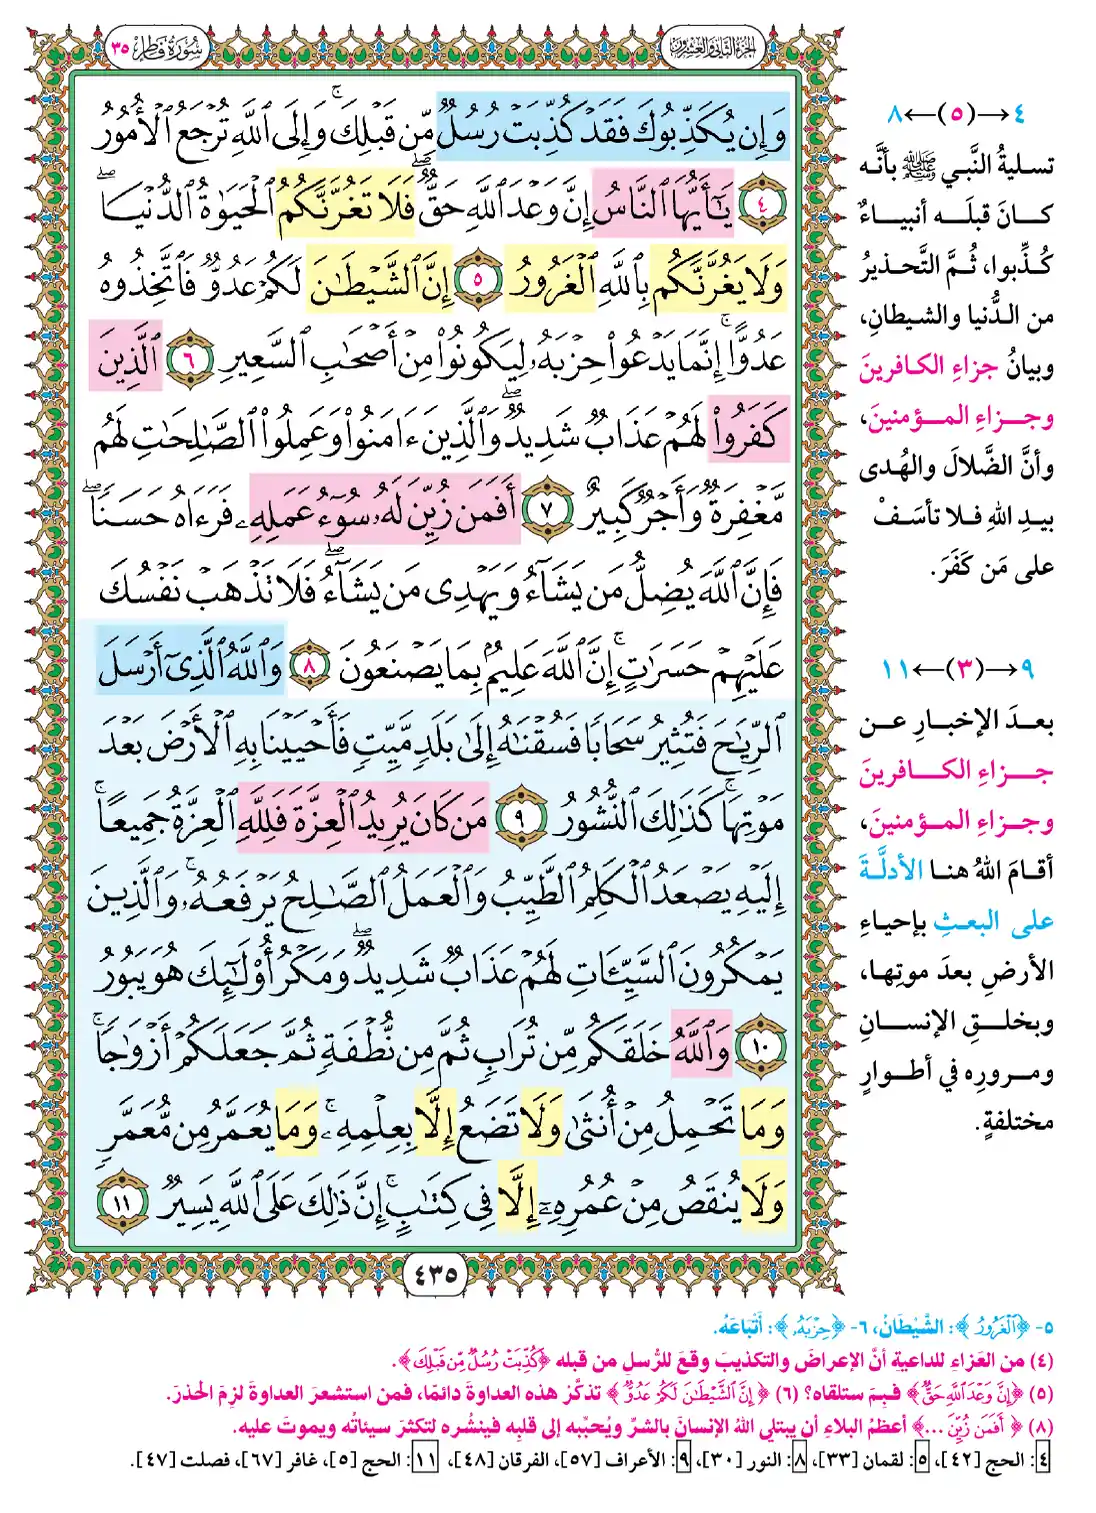 الجزء الثاني والعشرون
سورة فاطر ٣٥
وَإِن يُكَذِّبُوكَ فَقَدْ كُذِّبَتْ رُسُلٌ مِّن قَبْلِكَ ۚ وَإِلَى ٱللَّهِ تُرْجَعُ ٱلْأُمُورُ
٤ يَٰٓأَيُّهَا ٱلنَّاسُ إِنَّ وَعْدَ ٱللَّهِ حَقٌّ ۖ فَلَا تَغُرَّنَّكُمُ ٱلْحَيَوٰةُ ٱلدُّنْيَا ۖ
وَلَا يَغُرَّنَّكُم بِٱللَّهِ ٱلْغَرُورُ ٥ إِنَّ ٱلشَّيْطَٰنَ لَكُمْ عَدُوٌّ فَٱتَّخِذُوهُ
عَدُوًّا ۚ إِنَّمَا يَدْعُوا۟ حِزْبَهُۥ لِيَكُونُوا۟ مِنْ أَصْحَٰبِ ٱلسَّعِيرِ ٦ ٱلَّذِينَ
كَفَرُوا۟ لَهُمْ عَذَابٌ شَدِيدٌ ۖ وَٱلَّذِينَ ءَامَنُوا۟ وَعَمِلُوا۟ ٱلصَّٰلِحَٰتِ لَهُم
مَّغْفِرَةٌ وَأَجْرٌ كَبِيرٌ ٧ أَفَمَن زُيِّنَ لَهُۥ سُوٓءُ عَمَلِهِۦ فَرَءَاهُ حَسَنًا ۖ
فَإِنَّ ٱللَّهَ يُضِلُّ مَن يَشَآءُ وَيَهْدِى مَن يَشَآءُ ۖ فَلَا تَذْهَبْ نَفْسُكَ
عَلَيْهِمْ حَسَرَٰتٍ ۚ إِنَّ ٱللَّهَ عَلِيمٌۢ بِمَا يَصْنَعُونَ ٨ وَٱللَّهُ ٱلَّذِىٓ أَرْسَلَ
ٱلرِّيَٰحَ فَتُثِيرُ سَحَابًا فَسُقْنَٰهُ إِلَىٰ بَلَدٍ مَّيِّتٍ فَأَحْيَيْنَا بِهِ ٱلْأَرْضَ بَعْدَ
مَوْتِهَا ۚ كَذَٰلِكَ ٱلنُّشُورُ ٩ مَن كَانَ يُرِيدُ ٱلْعِزَّةَ فَلِلَّهِ ٱلْعِزَّةُ جَمِيعًا ۚ
إِلَيْهِ يَصْعَدُ ٱلْكَلِمُ ٱلطَّيِّبُ وَٱلْعَمَلُ ٱلصَّٰلِحُ يَرْفَعُهُۥ ۚ وَٱلَّذِينَ
يَمْكُرُونَ ٱلسَّيِّـَٔاتِ لَهُمْ عَذَابٌ شَدِيدٌ ۖ وَمَكْرُ أُو۟لَٰٓئِكَ هُوَ يَبُورُ
١٠ وَٱللَّهُ خَلَقَكُم مِّن تُرَابٍ ثُمَّ مِن نُّطْفَةٍ ثُمَّ جَعَلَكُمْ أَزْوَٰجًا ۚ
وَمَا تَحْمِلُ مِنْ أُنثَىٰ وَلَا تَضَعُ إِلَّا بِعِلْمِهِۦ ۚ وَمَا يُعَمَّرُ مِن مُّعَمَّرٍ
وَلَا يُنقَصُ مِنْ عُمُرِهِۦٓ إِلَّا فِى كِتَٰبٍ ۚ إِنَّ ذَٰلِكَ عَلَى ٱللَّهِ يَسِيرٌ ١١
٤٣٥
٤→(٥)←٨
تسليةُ النَّبي ﷺ بأنَّه
كـانَ قبلَـه أنبيـاءٌ
كُذِّبوا، ثُمَّ التَّحذيرُ
من الدُّنيا والشيطانِ،
وبيانُ جزاءِ الكافرينَ
وجـزاءِ المـؤمنينَ،
وأنَّ الضَّلالَ والهُدى
بيـدِ اللهِ فـلا تأسَـفْ
على مَن كَفَرَ.
٩→(٣)←١١
بعـدَ الإخبـارِ عـن
جـزاءِ الكـافرينَ
وجـزاءِ المـؤمنينَ،
أقـامَ اللهُ هنـا الأدلَّـةَ
على البعـثِ بإحيـاءِ
الأرضِ بعدَ موتِهـا،
وبخلـقِ الإنسـانِ
ومـرورِه في أطـوارٍ
مختلفةٍ.
٥- ﴿ٱلْغَرُورُ﴾: الشَّيْطَانُ، ٦- ﴿حِزْبَهُۥ﴾: أَتْبَاعَهُ.
(٤) من العَزاءِ للداعية أنَّ الإعراضَ والتكذيبَ وقعَ للرُّسلِ من قبله ﴿كُذِّبَتْ رُسُلٌ مِّن قَبْلِكَ﴾.
(٥) ﴿إِنَّ وَعْدَ ٱللَّهِ حَقٌّ﴾ فبِمَ ستلقاه؟ (٦) ﴿إِنَّ ٱلشَّيْطَٰنَ لَكُمْ عَدُوٌّ﴾ تذكَّر هذه العداوةَ دائمًا، فمن استشعرَ العداوةَ لزِمَ الحَذرَ.
(٨) ﴿أَفَمَن زُيِّنَ ...﴾ أعظمُ البلاءِ أن يبتلي اللهُ الإنسانَ بالشرِّ ويُحبِّبه إلى قلبِه فينشُره لتكثرَ سيئاتُه ويموتَ عليه.
٤: الحج [٤٢]، ٥: لقمان [٣٣]، ٨: النور [٣٠]، ٩: الأعراف [٥٧]، الفرقان [٤٨]، ١١: الحج [٥]، غافر [٦٧]، فصلت [٤٧].